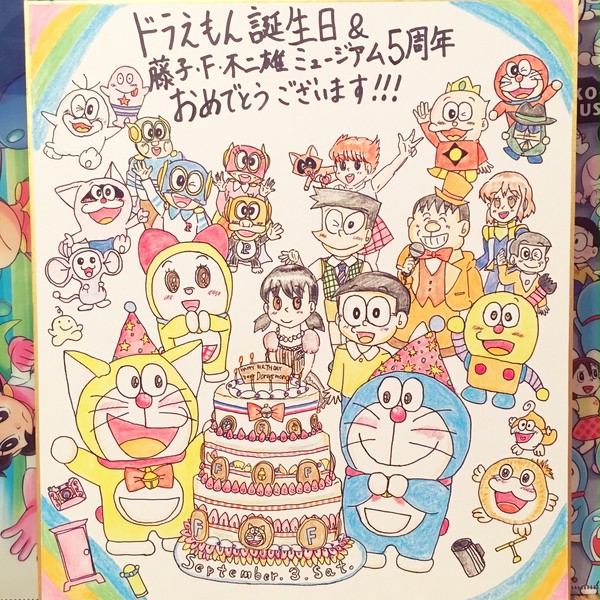 ドラえもん誕生日&
藤子・F・不二雄ミュージアム5周年
おめでとうございます!!!
HAPPY BIRTHDAY
P
F F
F F
September. 3. Sat.